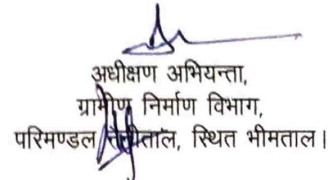 अधीक्षण अभियन्ता,
ग्रामीण निर्माण विभाग,
परिमण्डल नैनीताल, स्थित भीमताल।